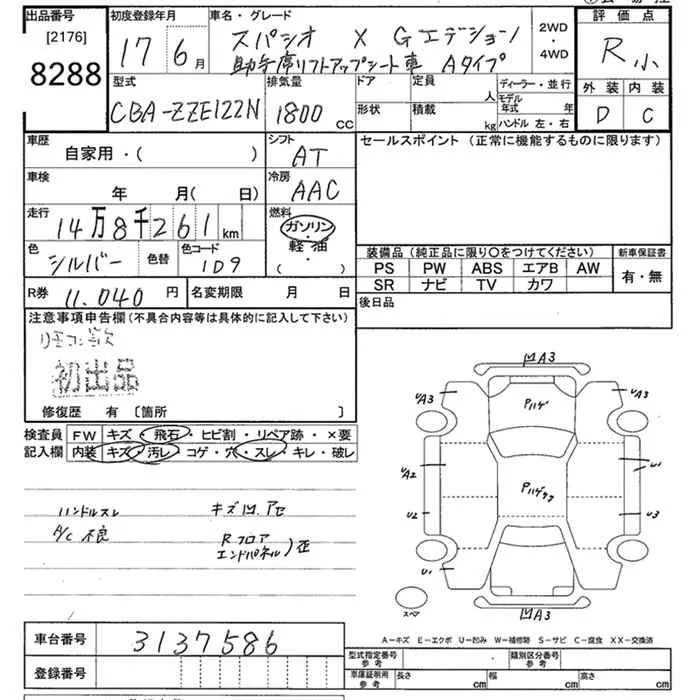 出品番号
[2176]
8288
初度登録年月
17 6月
車名・グレード
スパシオ X Gエディション
助手席リフトアップシート車 Aタイプ
2WD
・
4WD
評価点
R小
型式
CBA-ZZE122N
排気量
1800 cc
ドア
形状
定員
人
積載
kg
ディーラー・並行
モデル
年式 年
ハンドル 左・右
外装 内装
D C
車歴
自家用・( )
シフト
AT
セールスポイント (正常に機能するものに限ります)
車検
年 月( 日)
冷房
AAC
走行
14万8千261km
燃料
ガソリン
・
軽油
( )
色
シルバー
色替
色コード
1D9
装備品 (純正品に限り○をつけてください)
新車保証書
PS PW ABS エアB AW
SR ナビ TV カワ
有・無
R券 11.040 円
名変期限 月 日
後日品
注意事項申告欄 (不具合内容等は具体的に記入して下さい)
リモコン欠
初出品
修復歴 有 〔箇所 〕
検査員
記入欄
FW キズ・飛石・ヒビ割・リペア跡・×要
内装 キズ・汚レ・コゲ・穴・スレ・キレ・破レ
ハンドルスレ
A/C 不良
キズ凹、アセ
Rフロア
エンドパネル)歪
凹A3
UA3
UA3
Pハゲ
UA2
U1
Pハゲ
U2
U3
U1
スペア
凹A3
A－キズ E－エクボ U－凹み W－補修跡 S－サビ C－腐食 XX－交換済
車台番号
3137586
登録番号
型式指定番号
参考
類別区分番号
参考
車庫証明用
参考
長さ cm 幅 cm 高さ cm